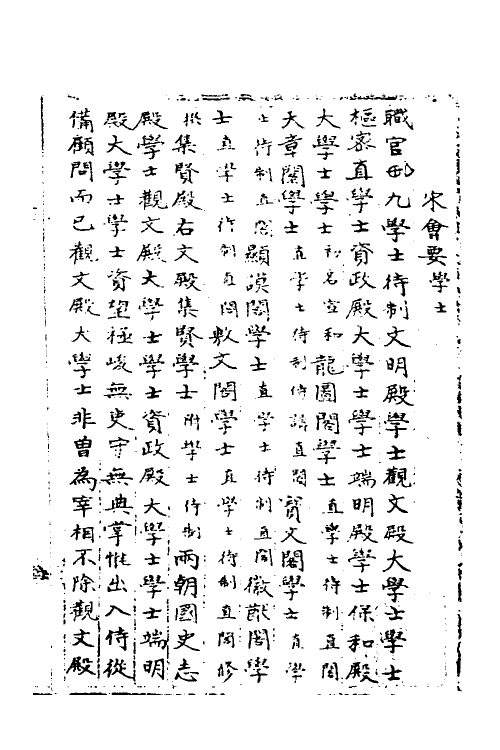 宋會要學士
職官部九學士待制文明殿學士觀文殿大學士學士
樞密直學士資政殿大學士學士端明殿學士保和殿
大學士學士初名宣和龍圖閣學士直學士待制直閣
天章閣學士直學士待制侍講直閣寶文閣學士直學
士待制直閣顯謨閣學士直學士待制直閣徽猷閣學
士直學士待制直閣敷文閣學士直學士待制直閣修
撰集賢殿右文殿集賢學士附學士待制兩朝國史志
殿學士觀文殿大學士學士資政殿大學士學士端明
殿大學士學士資望極峻無吏守無典掌惟出入侍從
備顧問而已觀文殿大學士非曾為宰相不除觀文殿